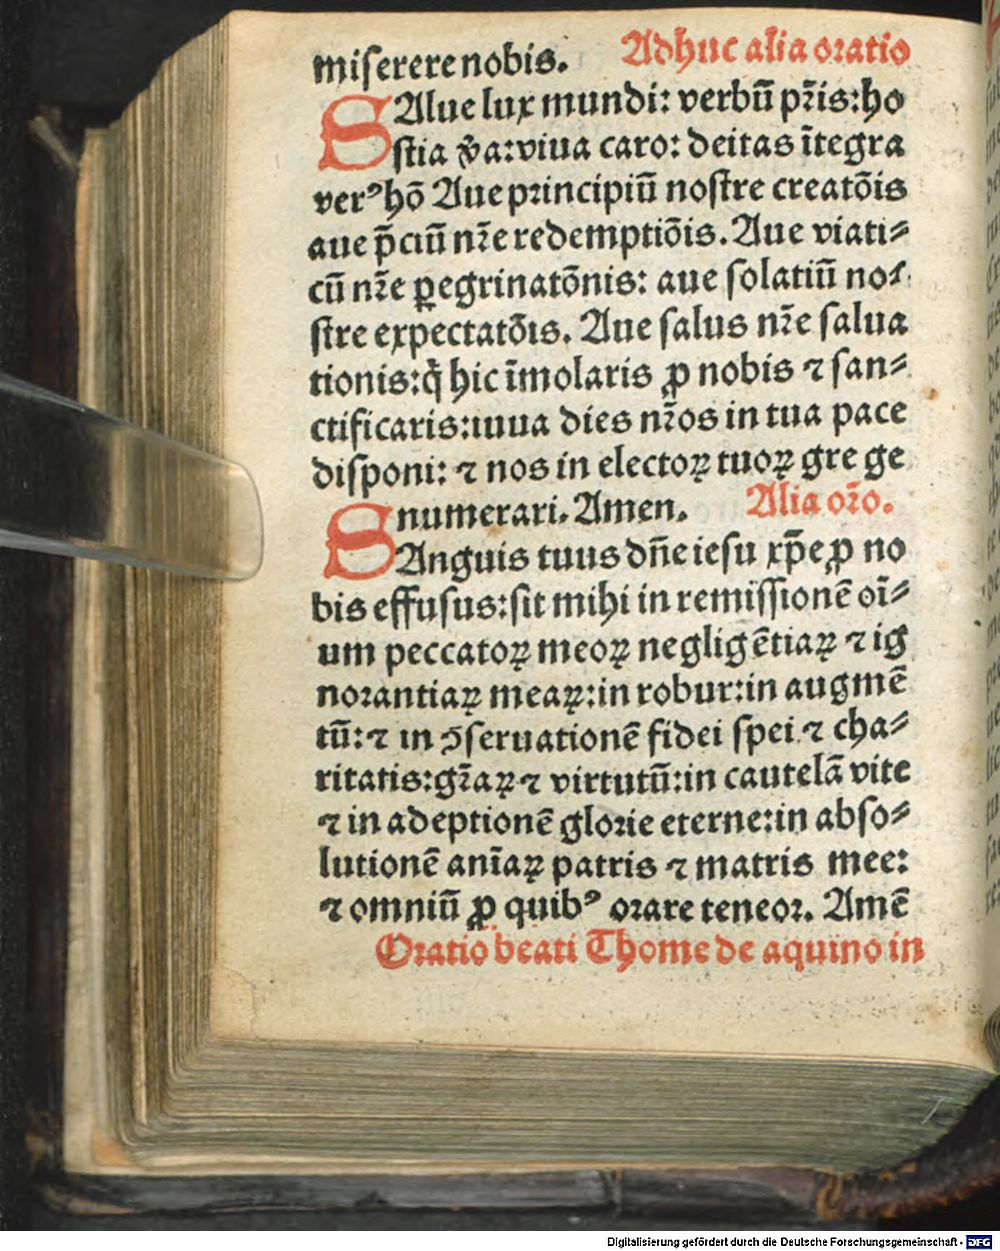 miserere nobis. Adhuc alia oratio
SAlue lux mundi: verbū pr̄is: ho
stia v̄a: viua caro: deitas ītegra
verꝰ hō Aue principiū nostre creatōis
aue p̄ciū nr̄e redemptiōis. Aue viati⸗
cū nr̄e ꝑegrinatōnis: aue solatiū no⸗
stre expectatōis. Aue salus nr̄e salua
tionis: q̇ hic īmolaris ꝓ nobis ⁊ san⸗
ctificaris: uua dies nr̄os in tua pace
disponi: ⁊ nos in electoꝝ tuoꝝ grege
numerari. Amen. Alia or̄o.
SAnguis tuus dn̄e iesu xp̄e ꝓ no
bis effusus: sit mihi in remissionē oī⸗
um peccatoꝝ meoꝝ negligētiaꝝ ⁊ ig
norantiaꝝ meaꝝ: in robur: in augmē
tū: ⁊ in ꝯseruationē fidei spei ⁊ cha⸗
ritatis: gr̄aꝝ ⁊ virtutū: in cautelā vite
⁊ in adeptionē glorie eterne: in abso⸗
lutionē anīaꝝ patris ⁊ matris mee:
⁊ omniū ꝓ quibꝰ orare teneor. Amē
Oratio beati Thome de aquino in
Digitalisierung gefördert durch die Deutsche Forschungsgemeinschaft - DFG